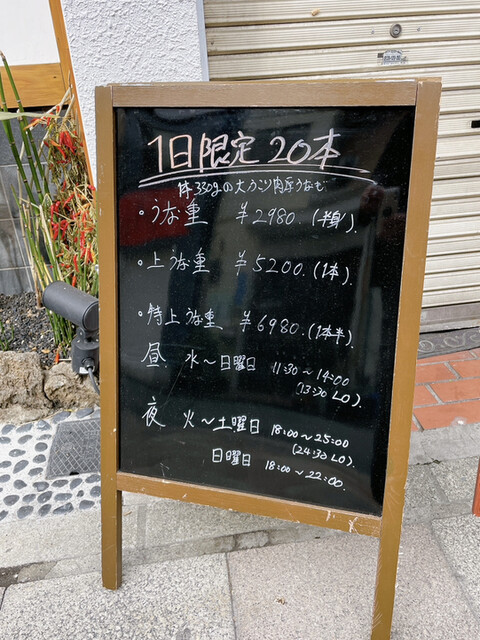 1日限定 20本
1本 330gの大ぶり肉厚うなぎ
・うな重 ¥2980.(半身).
・上うな重 ¥5200.(1本).
・特上うな重 ¥6980.(1本半).
昼 水〜日曜日 11:30〜14:00
(13:30 LO).
夜 火〜土曜日 18:00〜25:00
(24:30 LO).
日曜日 18:00〜22:00.